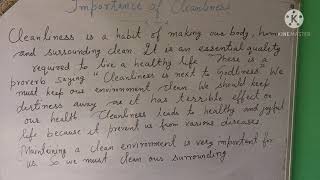 Importance of Cleanliness
KINEMASTER
Cleanliness is a habit of making our body, home
and surrounding clean. It is an essential quality
required to live a healthy life. There is a
proverb saying "Cleanliness is next to Godliness". We
must keep our environment clean. We should keep
dirtiness away as it has terrible effect on
our health. Cleanliness leads to healthy and joyful
life because it prevent us from various diseases.
Maintaining a clean environment is very important for
us. So we must clean our surrounding